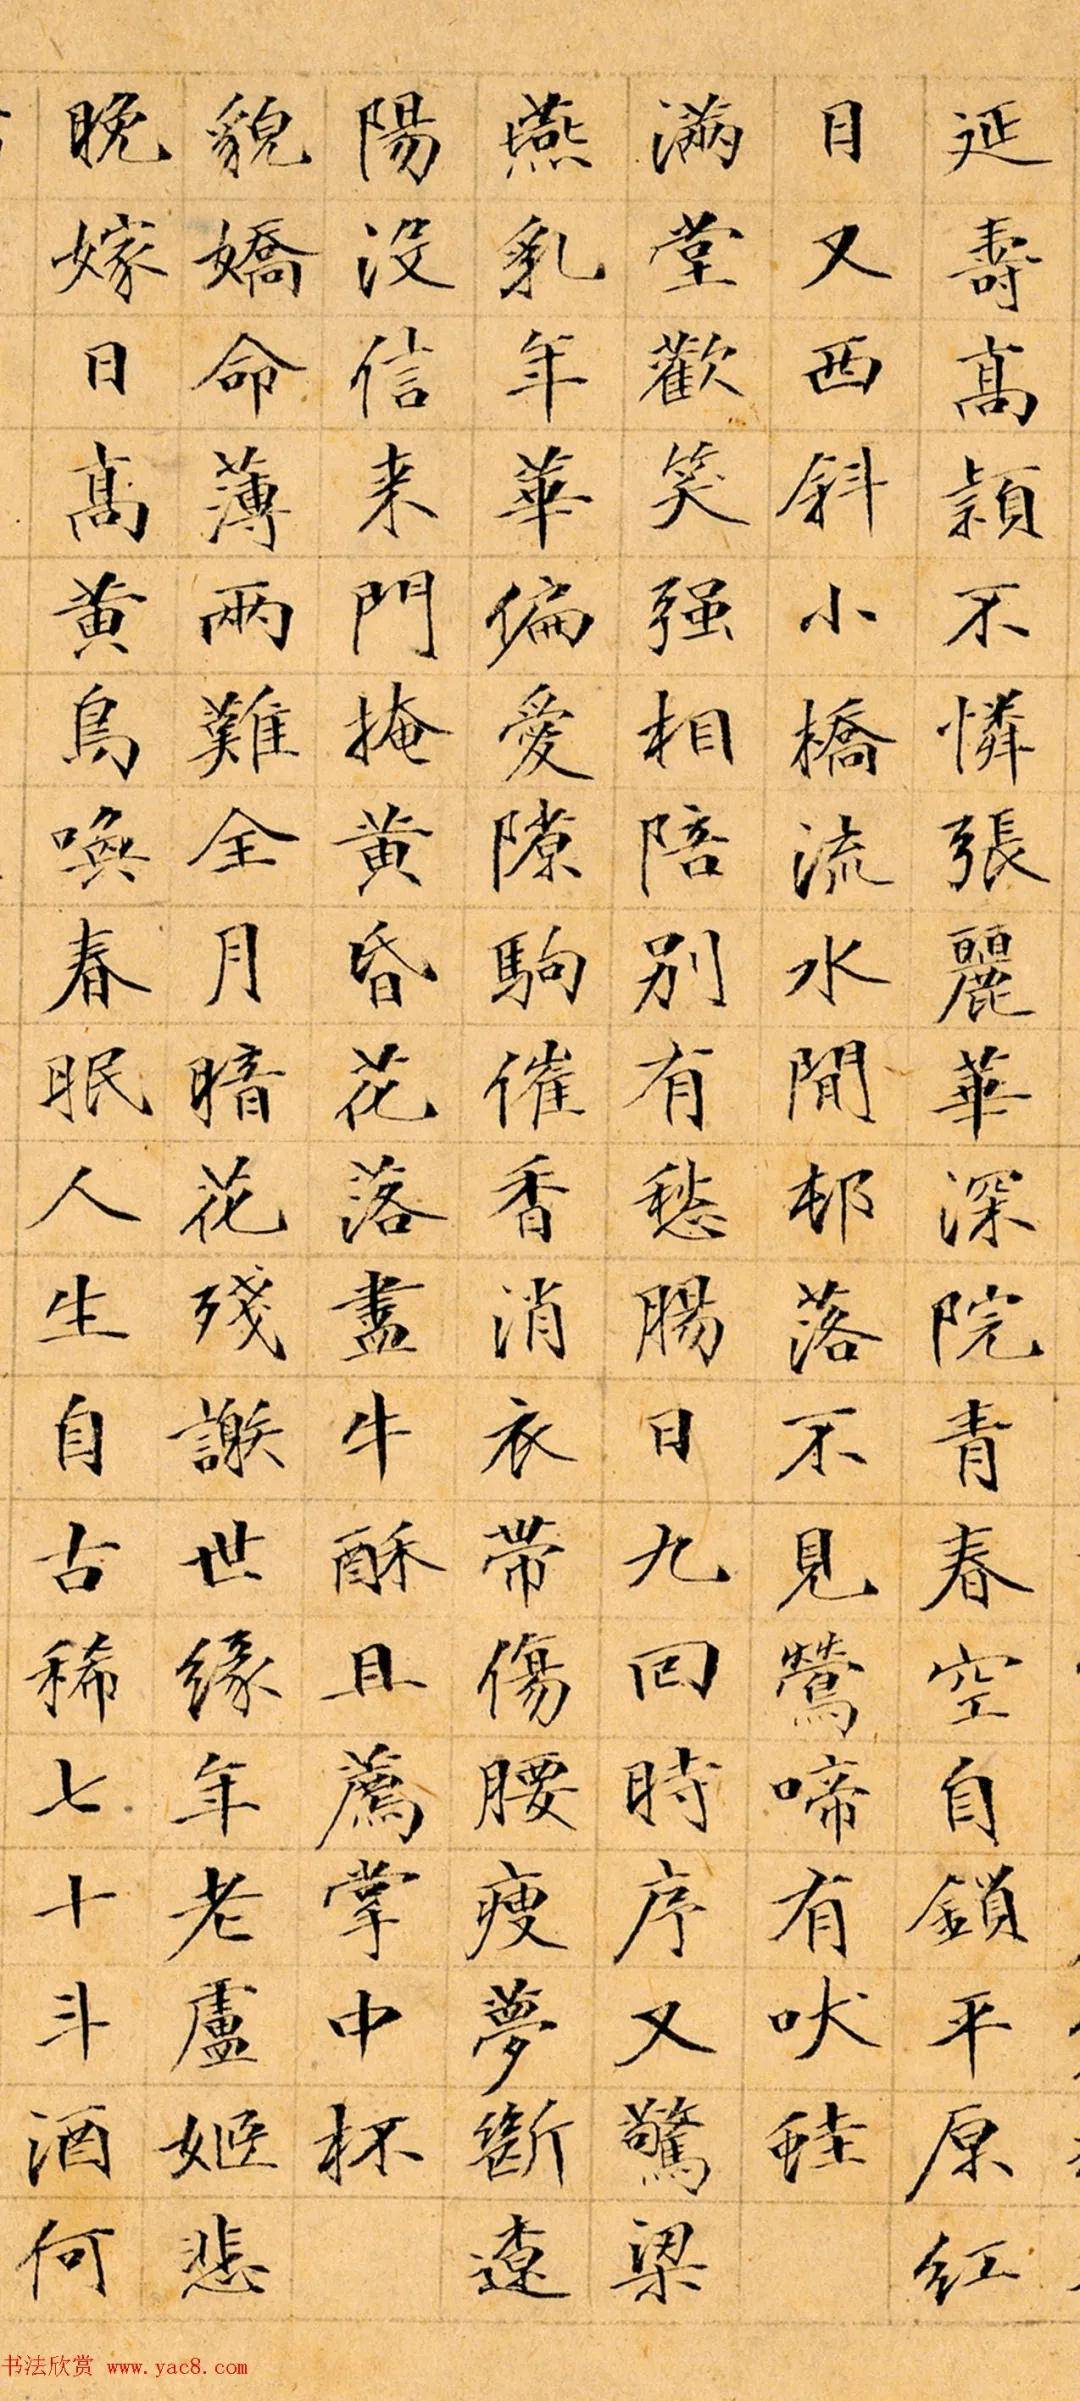 延壽高潁不憐張麗華深院青春空自鎖平原紅
日又西斜小橋流水閒邨落不見鶯啼有吠蛙
滿堂歡笑强相陪別有愁腸日九回時序又驚梁
燕乳年華偏愛隙駒催香消衣帶傷腰瘦夢斷遼
陽沒信来門掩黃昏花落盡牛酥且薦掌中杯
貌嬌命薄兩難全月暗花殘謝世緣年老盧姬悲
晚嫁日高黃鳥喚春眠人生自古稀七十斗酒何
书法欣赏 www.yac8.com